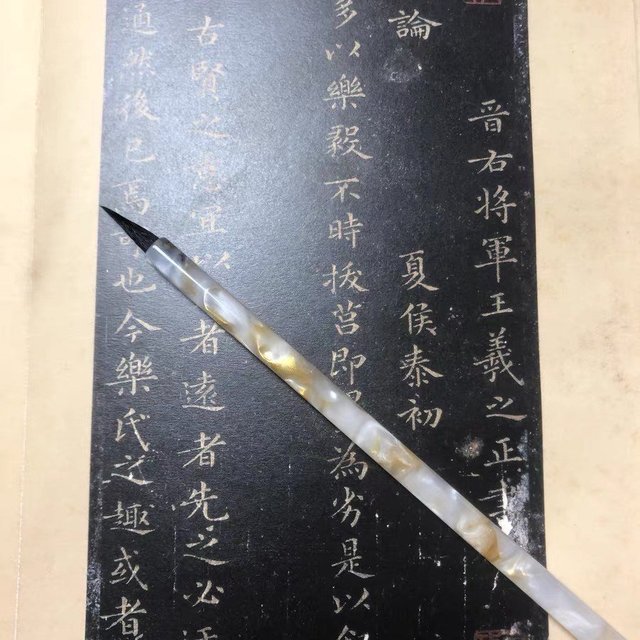 晉右將軍王羲之正書
論
夏侯泰初
多以樂毅不時拔莒即
為劣是以
古賢之意宜以
者遠者先之必
通然後已焉可也今樂氏之趣或者